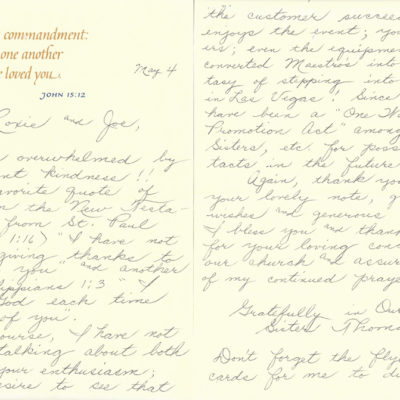 commandment:
one another
loved you.
JOHN 15:12
May 4
Roxie and Joe,
overwhelmed by
kindness!!
favorite quote of
the New Testa-
from St. Paul
1:16) "I have not
giving thanks to
you" and another
1:3 "I
God each time
of you".
course, I have not
talking about both
your enthusiasm;
desire to see that
the customer succee
enjoys the event; you
ers; even the equipmen
converted Maestros into
tasy of stepping into
in Las Vegas! Since
have been a "One W
Promotion Act" among
Sisters, etc. for poss
tacts in the future
Again, thank you
your lovely note, g
wishes and generous
I bless you and thank
for your loving conc
our church and assure
of my continued praye
Gratefully in Our
Sister Thoma
Don't forget the fly
cards for me to di